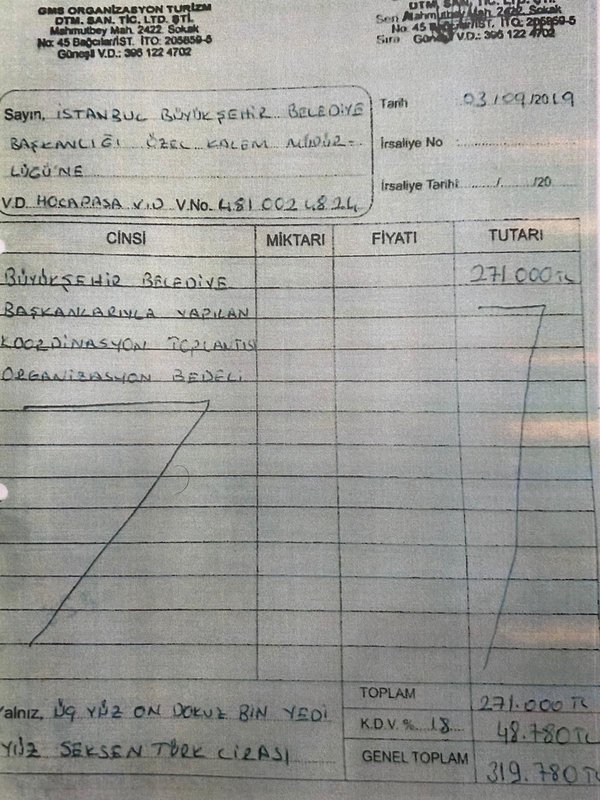 GMS ORGANİZASYON TURİZM
DTM. SAN. TİC. LTD. ŞTİ.
Mahmutbey Mah. 2422. Sokak
No: 45 Bağcılar/İST. İTO: 205859-5
Güneşli V.D.: 396 122 4702
DTM. SAN. TİC. LTD. ŞTİ.
Mahmutbey Mah. 2422. Sokak
No: 45 Bağcılar/İST. İTO: 205859-5
Sıra Güneşli V.D.: 396 122 4702
Sayın, İSTANBUL BÜYÜKŞEHİR BELEDİYE
BAŞKANLIĞI ÖZEL KALEM MÜDÜR-
LÜĞÜ'NE
V.D. HOCAPAŞA V.D V.No. 481 002 48 24
Tarih 03/09/2019
İrsaliye No :
İrsaliye Tarihi: / /20
CİNSİ MİKTARI FİYATI TUTARI
BÜYÜKŞEHİR BELEDİYE 271.000 TL
BAŞKANLARIYLA YAPILAN
KOORDİNASYON TOPLANTISI
ORGANİZASYON BEDELİ
TOPLAM 271.000 TL
Yalnız, ÜÇ YÜZ ON DOKUZ BİN YEDİ
K.D.V. % 18 48.780 TL
YÜZ SEKSEN TÜRK LİRASI
GENEL TOPLAM 319.780 TL